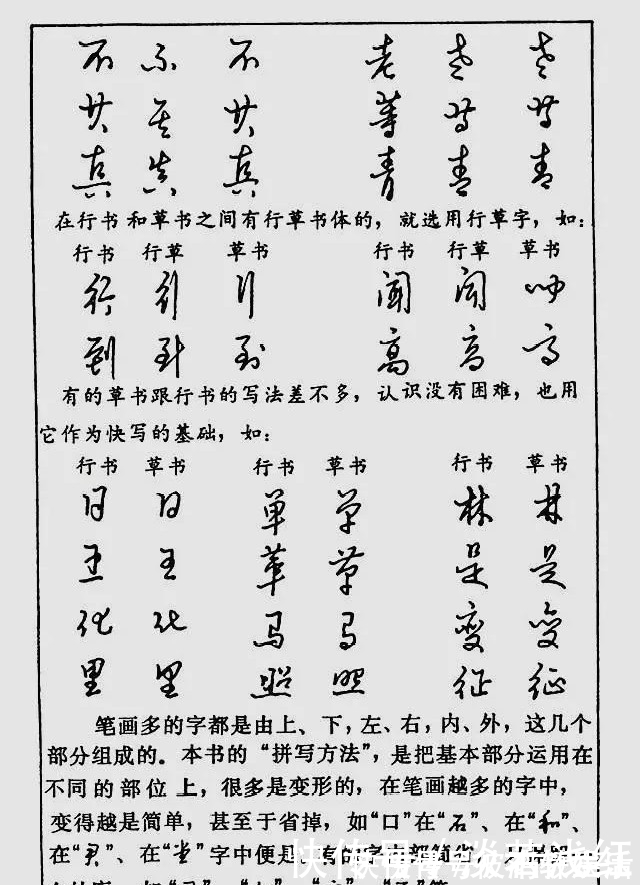 不 不 不 老 老 老
共 共 共 等 等 等
真 真 真 青 青 青
在行书和草书之间有行草书体的，就选用行草字，如：
行书 行草 草书 行书 行草 草书
行 行 行 闻 闻 闻
到 到 到 高 高 高
有的草书跟行书的写法差不多，认识没有困难，也用
它作为快写的基础，如：
行书 草书 行书 草书 行书 草书
日 日 单 单 林 林
王 王 革 革 是 是
化 化 马 马 变 变
里 里 照 照 征 征
笔画多的字都是由上、下，左、右，内、外，这几个
部分组成的。本书的“拼写方法”，是把基本部分运用在
不同的部位上，很多是变形的，在笔画越多的字中，
变得越是简单，甚至于省掉，如“口”在“石”、在“和”、
在“君”、在“堂”字中便是。有的字中部简省